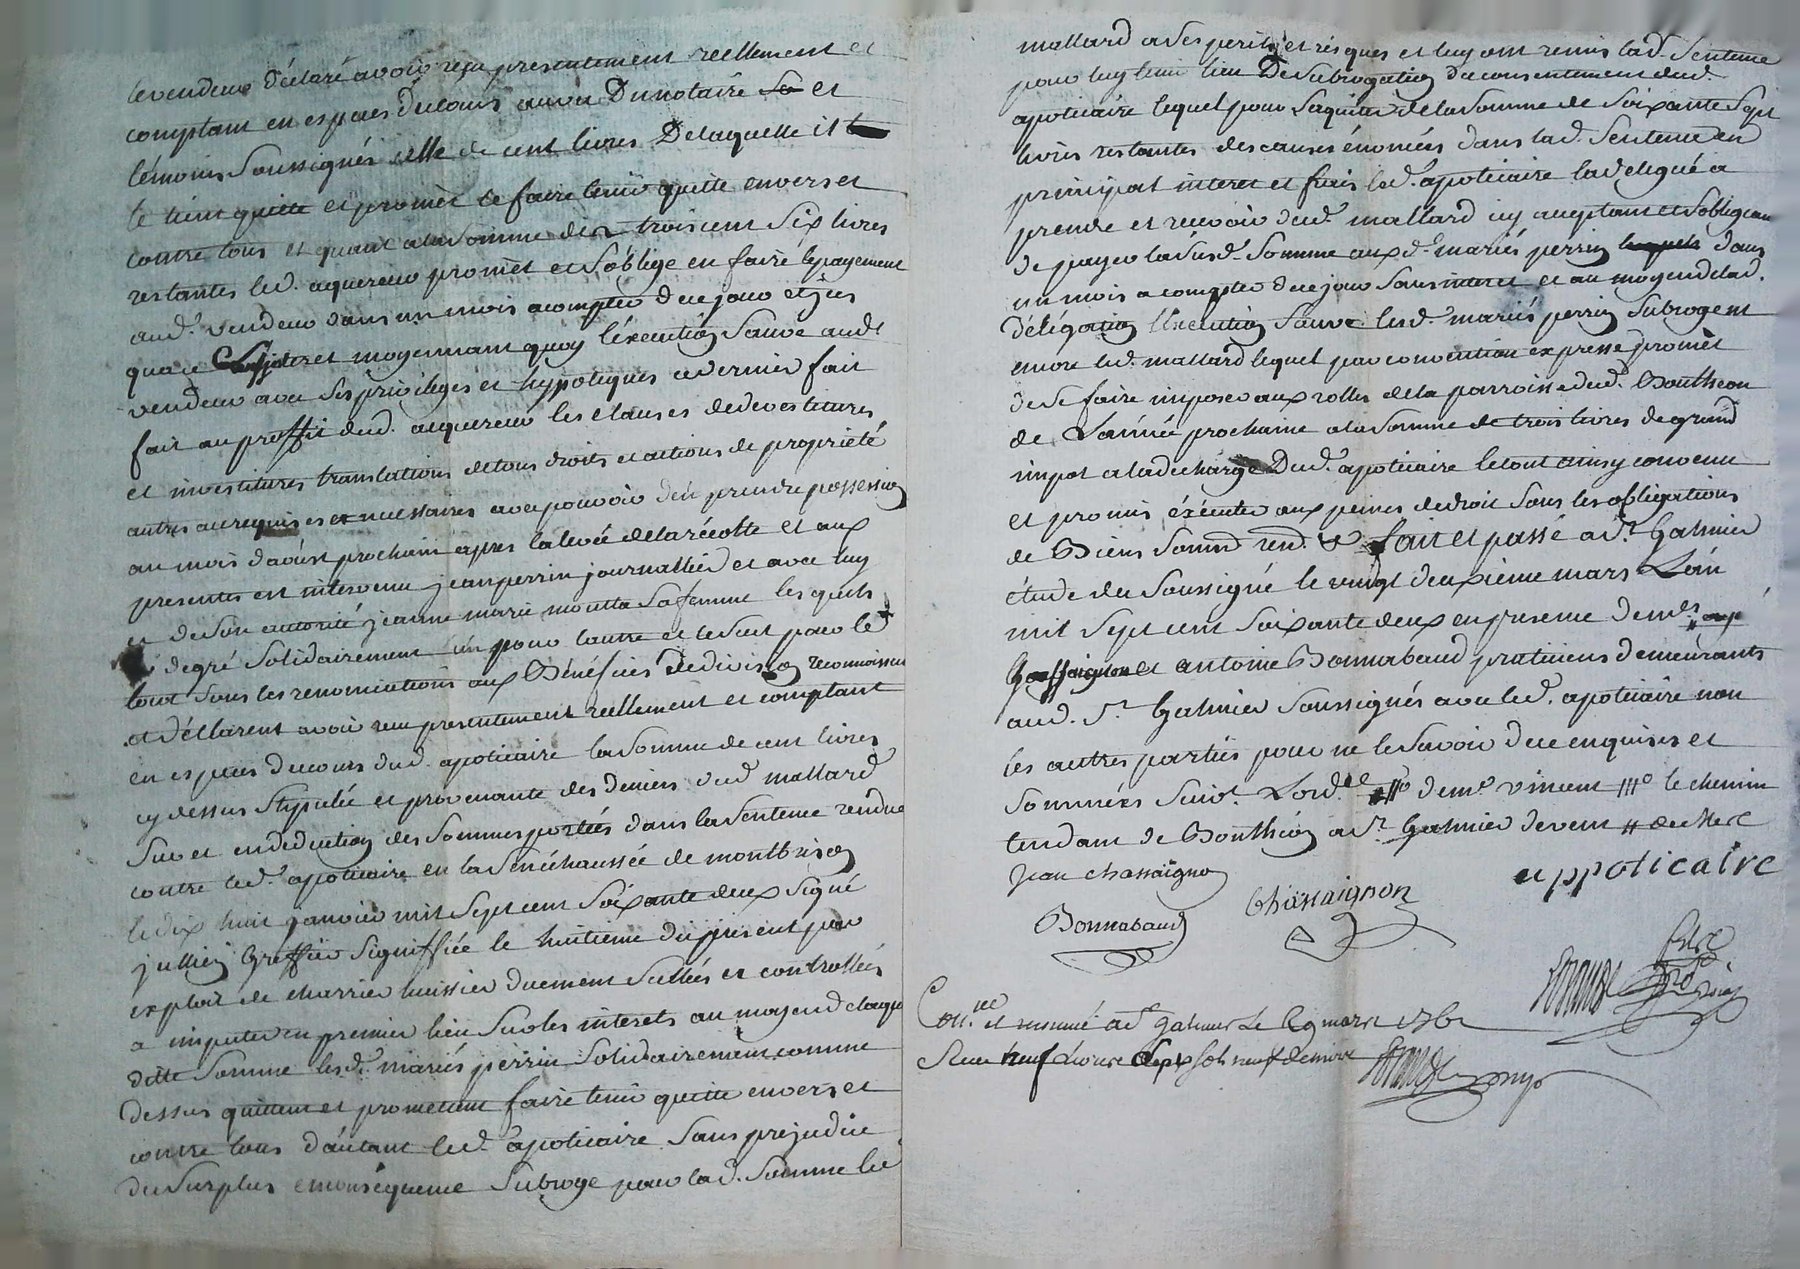 le vendeur déclare avoir reçu presentement reellement et
comptant en espaces du cours au vu du notaire et
témoins soussignés celle de cent livres de laquelle il
le tient quitte et promet le faire tenir quitte envers et
contre tous et quant a la somme de trois cent six livres
restantes led. aquereur promet et s'oblige en faire le payement
aud.t vendeur dans un mois a compter de ce jour
interet moyennant quoy l'éxécution sauve audt
vendeur avec ses privileges et hypoteques ce dernier fait
fait au proffit dud. aquereur les clauses de devestitures
et investitures translations de tous droits et actions de propriété
autres au requises et necessaires avec pouvoir d'en prendre possession
au mois d'aoust prochain apres la levée de la récolte et aux
presentes est intervenu jean perrin journallier et avec luy
et de son autorité jeanne marie moulla sa femme lesquels
de gré solidairement un pour l'autre et le seul pour le
tout sous les renonciations aux bénéfices de division reconnoissent
et déclarent avoir reçu presentement reellement et comptant
en espaces du cours dud. apoticaire la somme de cent livres
cy dessus stipulée et provenante des deniers dud mallard
sur et en deduction des sommes portées dans la sentence rendue
contre led.t apoticaire en la senéchaussée de montbrison
le dix huit janvier mil sept cent soixante deux signé
jullien greffier signiffiée le huitieme du present par
exploit de charrier huissier duement scellés et controllés
a imputer en premier lieu sur les interets au moyen de laque
ditte somme lesd.t mariés perrin solidairement comme
dessus quittent et promettent faire tenir quitte envers et
contre tous d'autant led.t apoticaire sans prejudice
du surplus en conséquence subroge pour lad. somme led
mallard a ses perils et risques et luy ont remis lad. sentence
pour luy tenir lieu de subrogation du consentement dud.
apoticaire lequel pour s'aquitter de la somme de soixante sept
livres restantes des causes énoncées dans lad. sentence en
principal interet et frais led. apoticaire la delegué a
prendre et recevoir dud. mallard icy acceptant et s'obligeant
de payer la susd. somme aux d.t mariés perrin dans
un mois a compter de ce jour sans interet et au moyen de lad.
délégation l'éxécution sauve lesd. mariés perrin subrogent
encore led. mallard lequel par convention expresse promet
de se faire imposer aux rolles de la parroisse dud. Bontheon
de l'année prochaine a la somme de trois livres de grand
impot a la décharge dud. apoticaire le tout ainsy convenu
et promis éxécuter aux peines de droit sous les obligations
de biens soumd rend. & fait et passé a St. Galmier
étude du soussigné le vingt deuxieme mars l'an
mil sept cent soixante deux en presence de
Chassaignon et antoine Bonnabaud praticiens demeurants
aud. St. Galmier soussignés avec led. apoticaire non
les autres parties pour ne le savoir de ce enquises et
sommées suiv.t l'ord. de me vincent le chemin
tendant de Bonthéon a St. Galmier
jean chassaignon
appoticaire
Chassaignon
Bonnabaud
et insinué a St galmier Le 29 mars 1762
Reçu neuf Livres sols neuf deniers